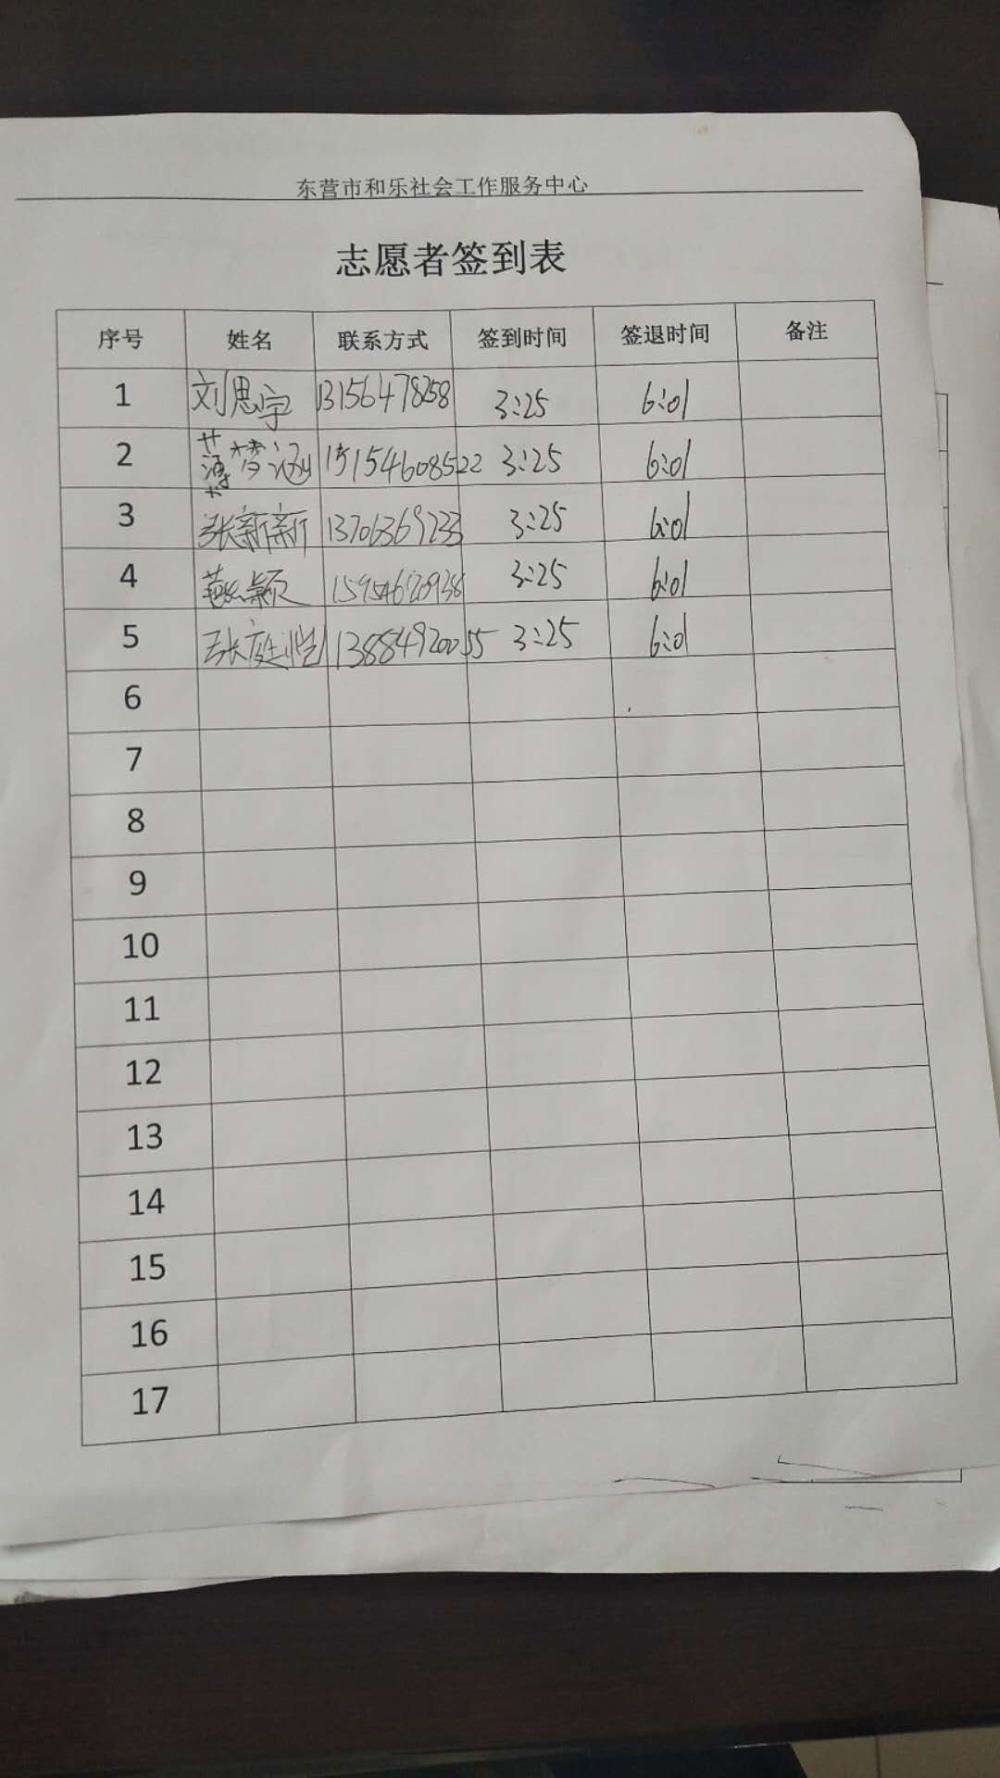 东营市和乐社会工作服务中心
志愿者签到表
序号 姓名 联系方式 签到时间 签退时间 备注
1 刘思宇 13156478258 3:25 6:01
2 3:25 6:01
3 张新新 13706369233 3:25 6:01
4 3:25 6:01
5 张庭恺 13884920055 3:25 6:01
6
7
8
9
10
11
12
13
14
15
16
17